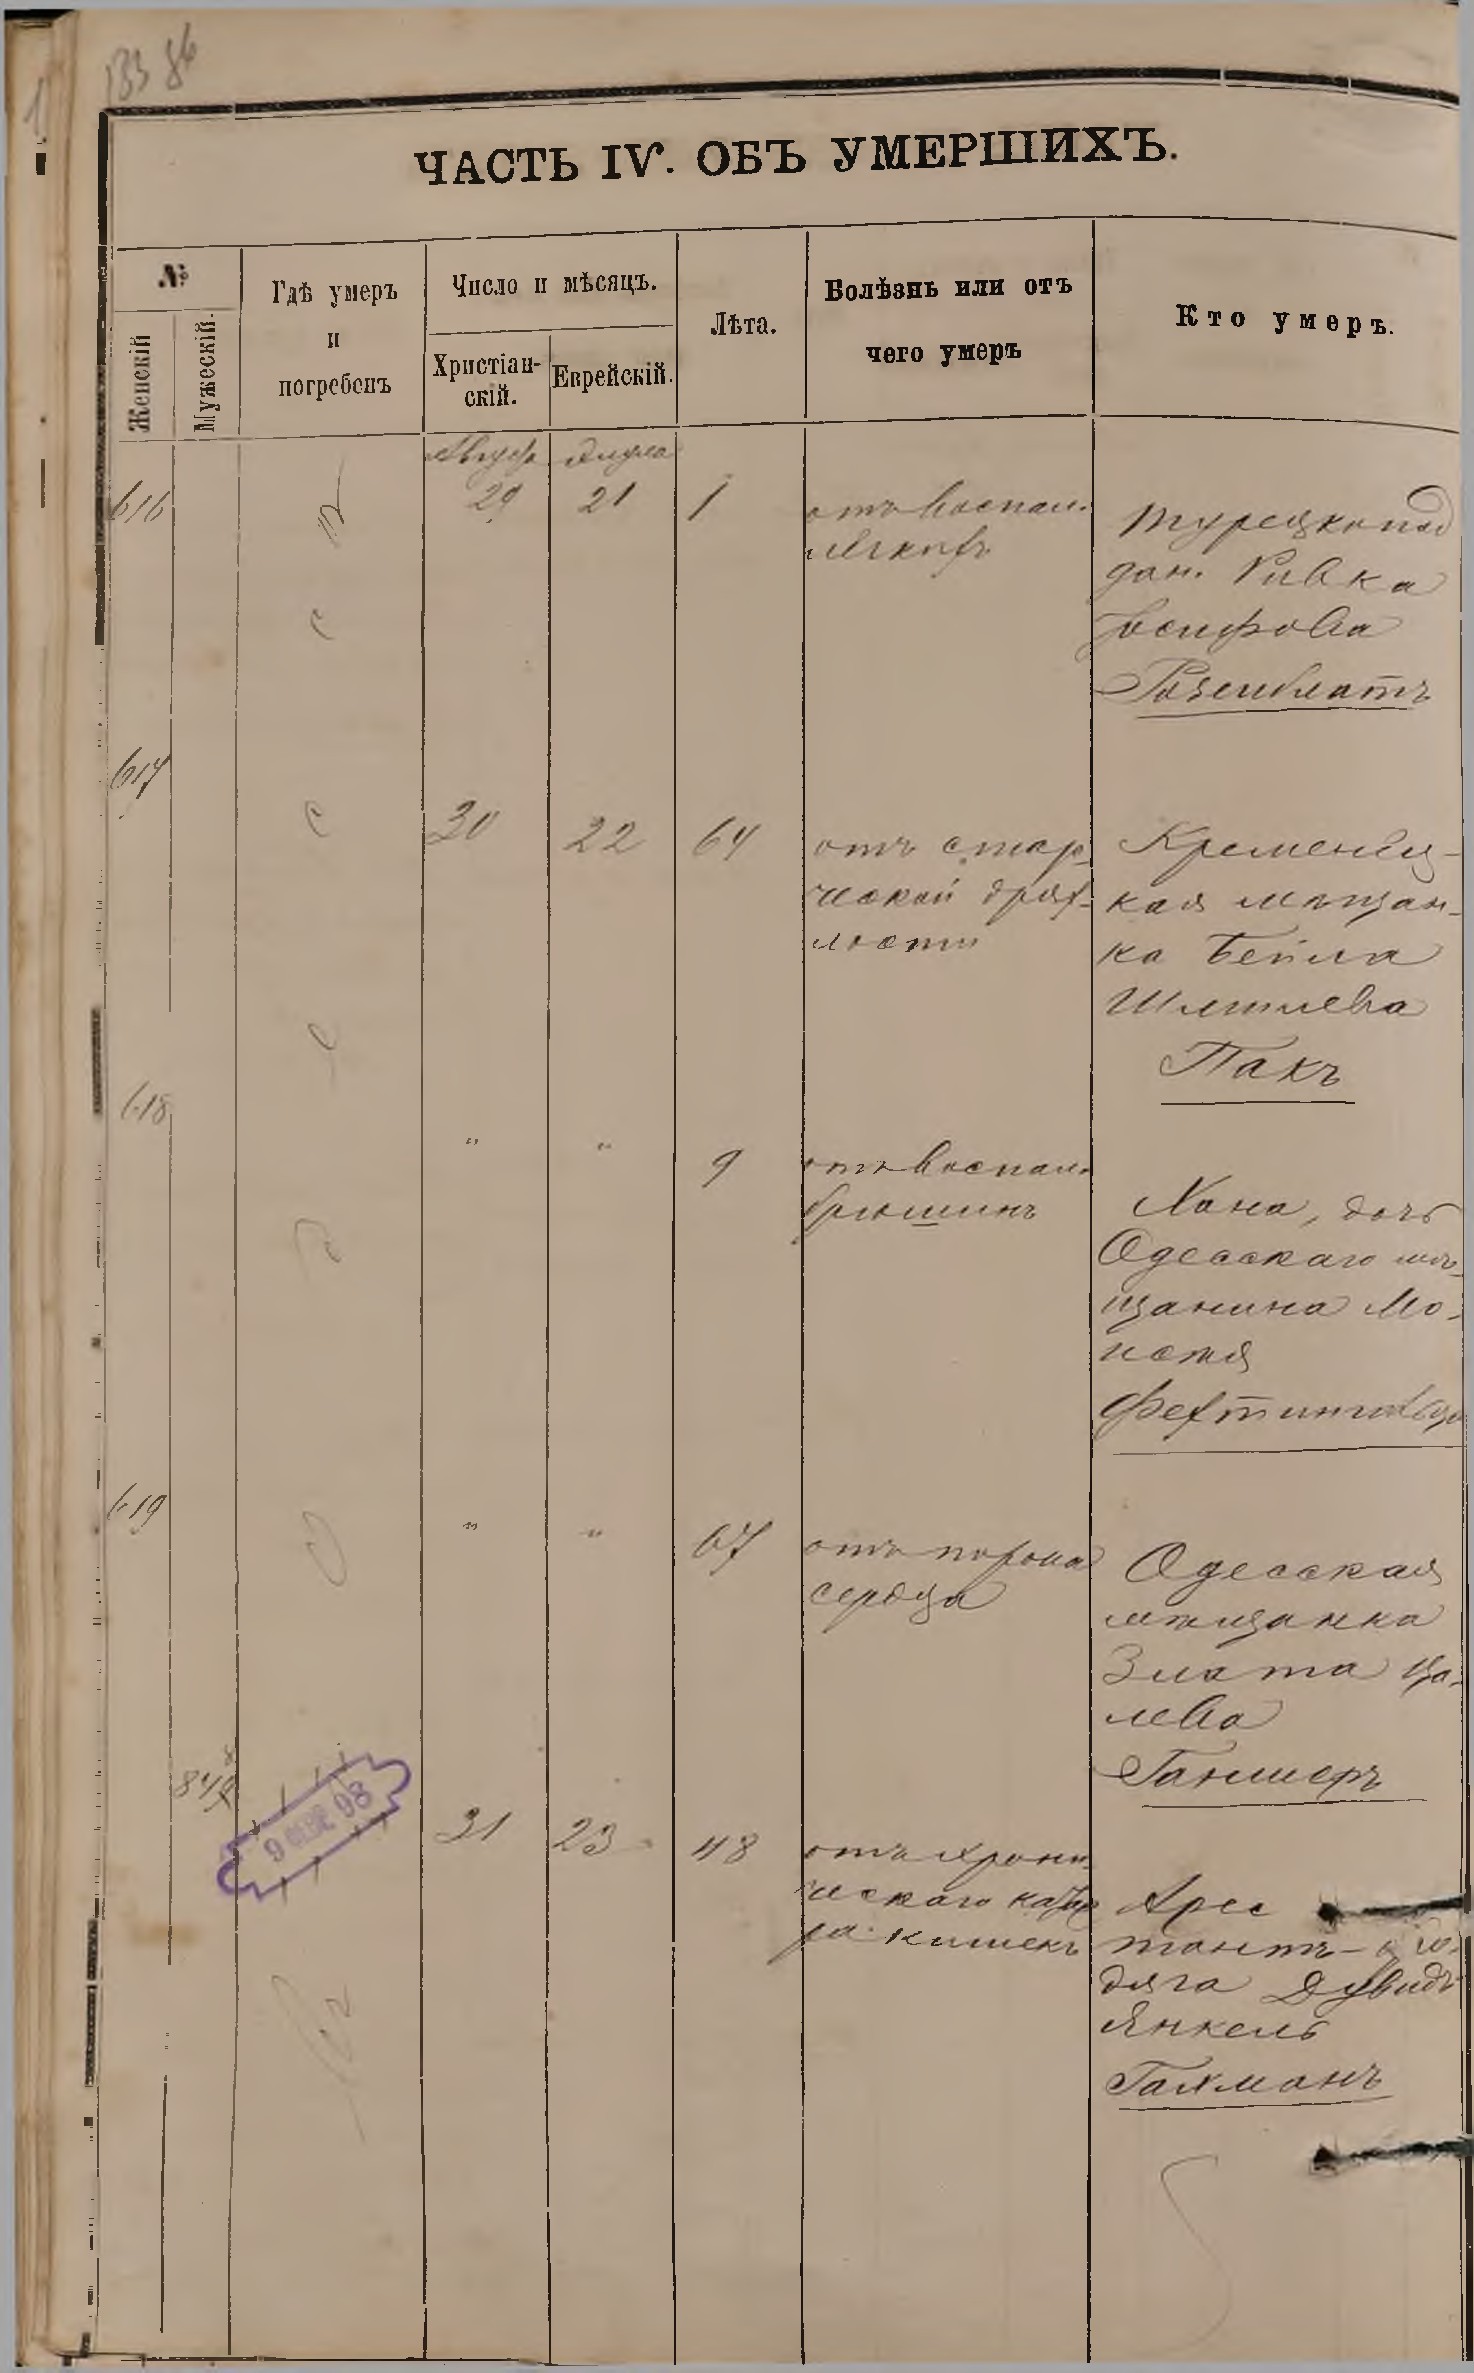 133 86
ЧАСТЬ IV. ОБЪ УМЕРШИХЪ.
№
Женскій
Мужескій.
Гдѣ умеръ
и
погребенъ
Число и мѣсяцъ.
Христіан-
скій.
Еврейскій.
Лѣта.
Болѣзнь или отъ
чего умеръ
Кто умеръ.
Август Элула
616 29 21 1
отъ воспал.
легкихъ
Турецкопод
дан. Ривка
Іосифова
Розенблатъ
617
30 22 64
отъ стар-
ческой дрях-
лости
Кременец-
кая мѣщан-
ка Бейла
Шмилева
Пакъ
618
" " 9
отъ воспал.
брюшины
Хана, дочь
Одесскаго мѣ-
щанина Мо-
исея
619
" " 67
отъ порока
сердца
Одесская
мѣщанка
Злата Ца-
лева
Ганшеръ
31 23 48
отъ хрони-
ческаго катар
ра кишекъ
Арес
тантъ-
дяга Дувидъ
Янкель
Гахманъ